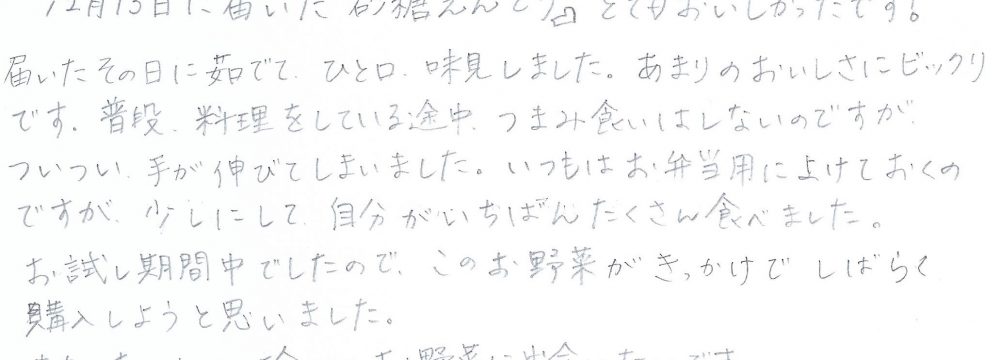 12月15日に届いた砂糖えんどう』とてもおいしかったです。
届いたその日に茹でて、ひと口、味見しました。あまりのおいしさにビックリ
です。普段、料理をしている途中、つまみ食いはしないのですが、
ついつい、手が伸びてしまいました。いつもはお弁当用によけておくの
ですが、少しにして、自分がいちばんたくさん食べました。
お試し期間中でしたので、このお野菜がきっかけで しばらく
購入しようと思いました。
お野菜に出会